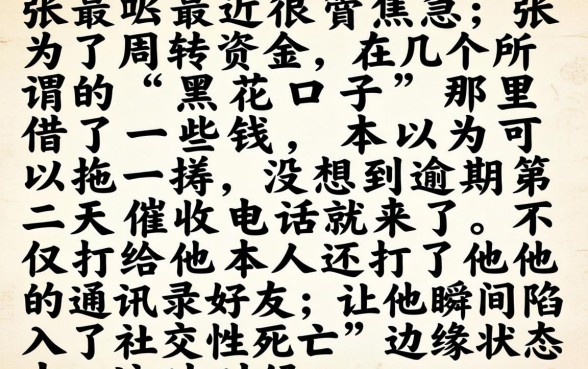 张最 最近很 焦急；张
为了周转资金，在几个所
谓的“黑花口子”那里
借了一些钱，本以为可
以拖一 ，没想到逾期第
二天催收电话就来了。不
仅打给他本人还打了他他
的通讯录好友；让他瞬间陷
入了社交性死亡”边缘状态